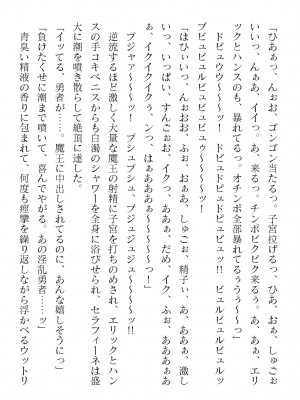 「ひあぁっ、んぉおお、ゴンゴン当たるっ。子宮拉げるっ、ひあ、おぉっ、しゅごいいっ、んぁぁ、あ、イイっ。あ、来るっ。チンポビクビク来るぅ。あ、あぁ、エリックとハンスのも、暴れてるっ。オチンポ全部暴れてるぅうぅ～～～ッ」
ドビュウウ～～～ッ！　ドビュドビュドビュビュッ!!　ビュルビュルビュルッブビュビュルビュルビュビュゥ～～～～ッ！
「はひぃいっ、んぉおお、ふぉ、おぉぉ、しゅごぉ、精子ぃ、あ、あぁぁ、激しいっっ、いっぱい、すんごぉお、イク、あぁぁ、だめ、イク、ふぉ、あぁぁああぁぁ、イクイクイクぅ、ンっ、はぁああぁぁ～～～～～っ！」
プシャァ～～～ッ！　プシュプシュ、プジュジュジュ～～～～ッ!!
逆流するほど激しく大量な魔王の射精に子宮を打ちのめされ、エリックとハンスの手コキペニスからも白濁のシャワーを全身に浴びせられ、セラフィーネは盛大に潮を噴き散らして絶頂に達した。
「イッてる、勇者が……。魔王に中出しされてるのに、あんな嬉しそうにっ」
「負けたくせに潮まで噴いて、喜んでやがる。あの淫乱勇者……ッ」
青臭い精液の香りに包まれて、何度も痙攣を繰り返しながら浮かべるウットリ